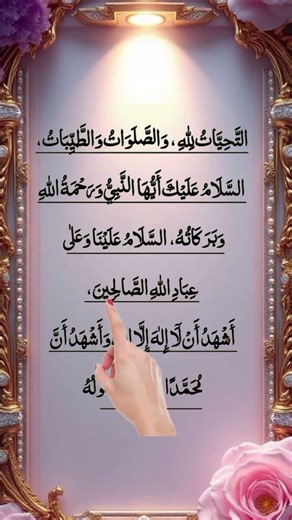 التَّحِيَّاتُ لِلّٰهِ، وَالصَّلَوَاتُ وَالطَّيِّبَاتُ،
السَّلَامُ عَلَيْكَ أَيُّهَا النَّبِيُّ وَرَحْمَةُ اللهِ
وَبَرَكَاتُهُ، السَّلَامُ عَلَيْنَا وَعَلٰى
عِبَادِ اللهِ الصَّالِحِينَ،
أَشْهَدُ أَنْ لَآ إِلٰهَ إِلَّا وَأَشْهَدُ أَنَّ
مُحَمَّدًا